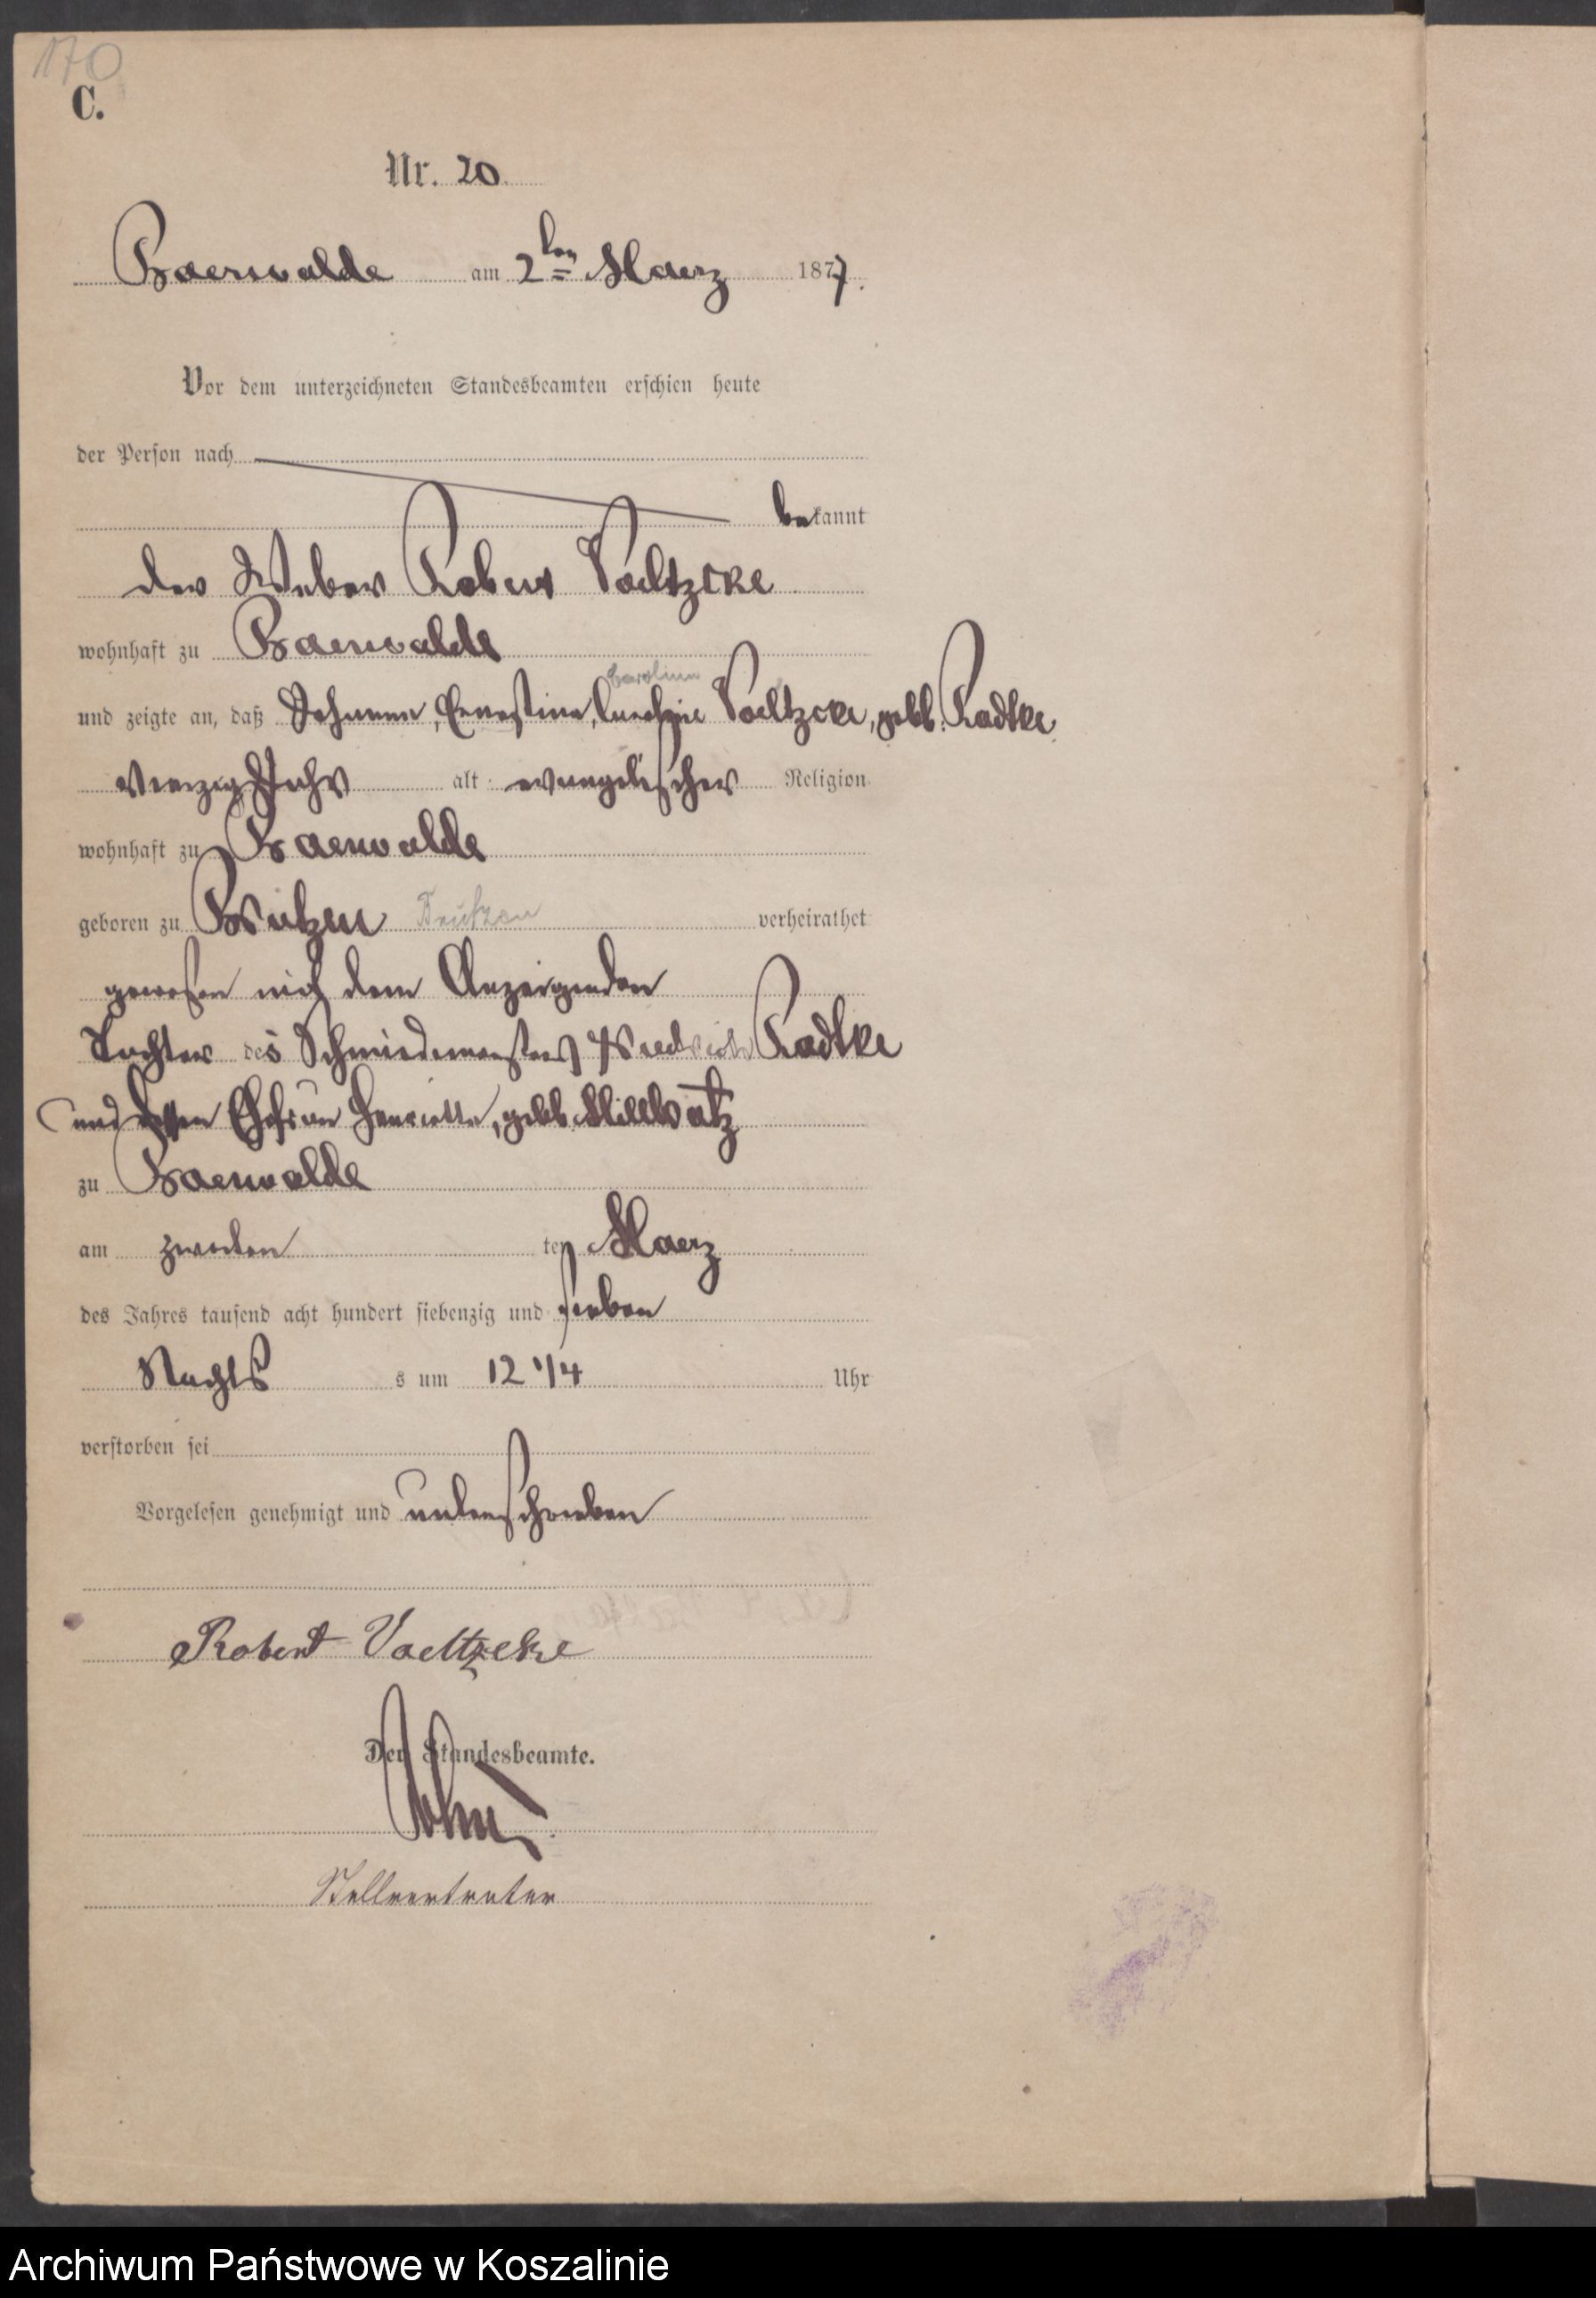 170
C.
Nr. 20.
Baerwalde am 2ten Maerz 1877.
Vor dem unterzeichneten Standesbeamten erschien heute
der Person nach
bekannt
der Weber Robert Voeltzcke
wohnhaft zu Baerwalde
Caroline
und zeigte an, daß Johanne, Ernestine, Voeltzcke, gebb. Radtke
vierzig Jahr alt evangelischer Religion
wohnhaft zu Baerwalde
geboren zu verheirathet
gewesen mit dem Anzeigenden
Tochter des Schmiedemeisters Friedrich Radtke
und dessen Ehefrau Henriette, gebb.
zu Baerwalde
am zweiten ten Maerz
des Jahres tausend acht hundert siebenzig und sieben
Nachts s um 12 1/4 Uhr
verstorben sei
Vorgelesen genehmigt und unterschrieben
Robert Voeltzcke
Der Standesbeamte.
Stellvertreter
Archiwum Państwowe w Koszalinie